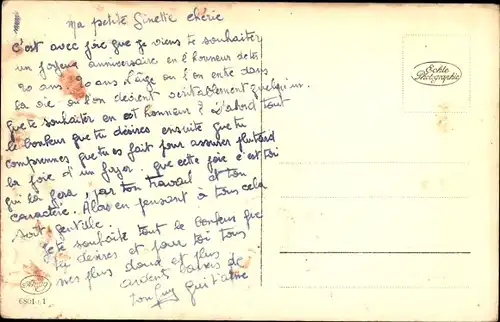 Ma petite Ginette chérie
C'est avec joie que je viens te souhaiter
un joyeux anniversaire en l'honneur de tes
20 ans. 20 ans l'âge où l'on entre dans
la vie où l'on devient véritablement quelqu'un.
Que te souhaiter en cet honneur ? D'abord tout
le bonheur que tu désires ensuite que tu
comprennes que tu es fait pour assurer plus tard
la joie d'un foyer, que cette joie c'est toi
qui la fera, par ton travail et ton
caractère. Alors en pensant à tous cela
soit gentille.
Je te souhaite tout le bonheur que
tu désires et pour toi tous
mes plus doux et plus
ardent baisers de
ton Guy qui t'aime
Echte
Photographie
6801/1